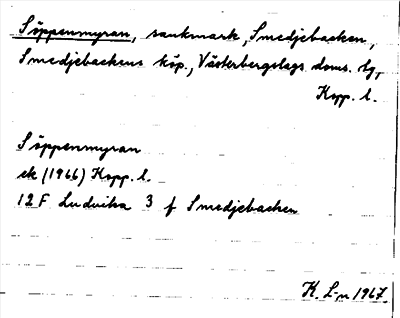 Söppenmyran, sankmark, Smedjebacken,
Smedjebackens köp., Västerbergslags doms. tg,
Kopp. l.
Söppenmyran
ek (1966) Kopp. l.
12F Ludvika 3 f Smedjebacken
K. L-n 1967.